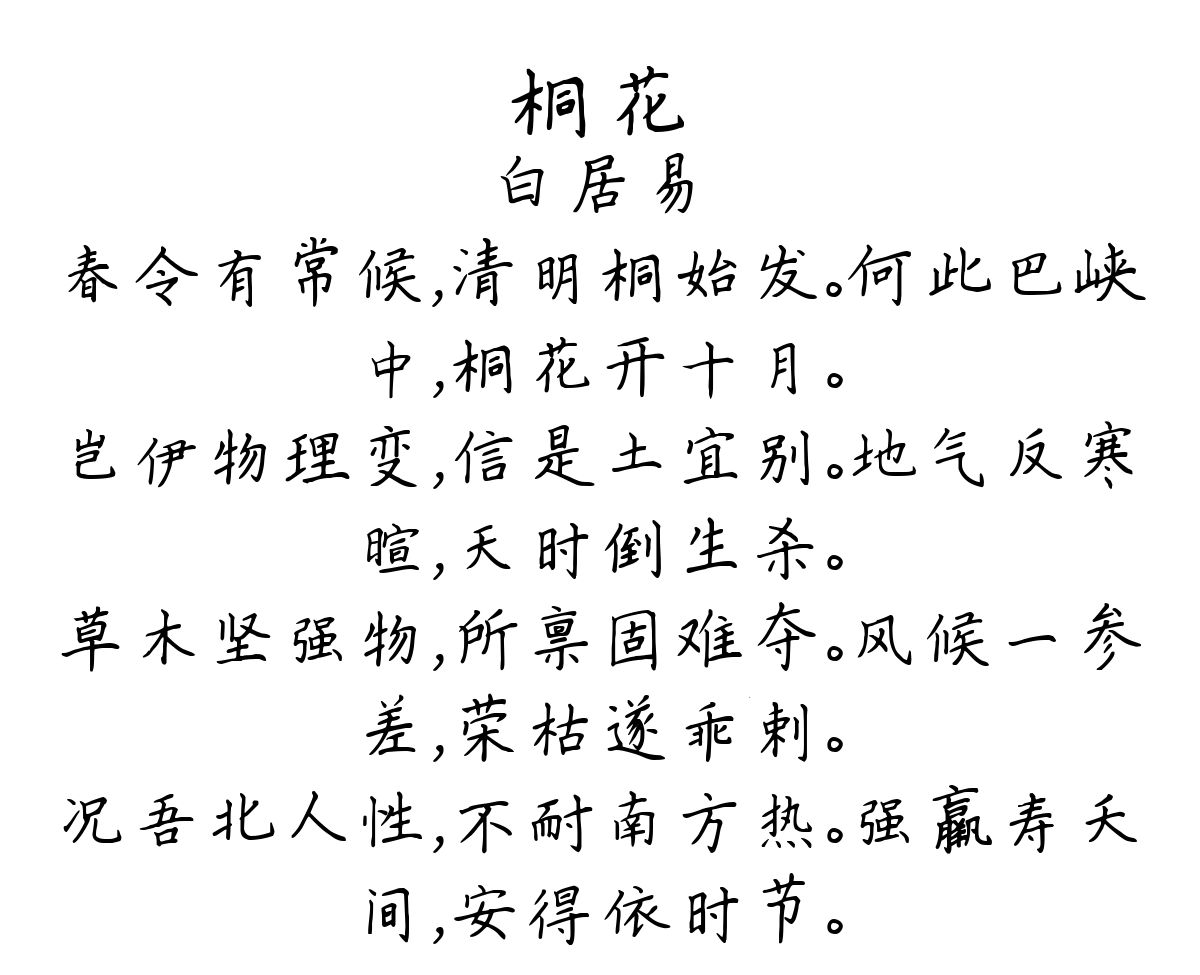 桐花
白居易
春令有常候,清明桐始发。何此巴峡
中,桐花开十月。
岂伊物理变,信是土宜别。地气反寒
暄,天时倒生杀。
草木坚强物,所禀固难夺。风候一参
差,荣枯遂乖剌。
况吾北人性,不耐南方热。强羸寿夭
间,安得依时节。